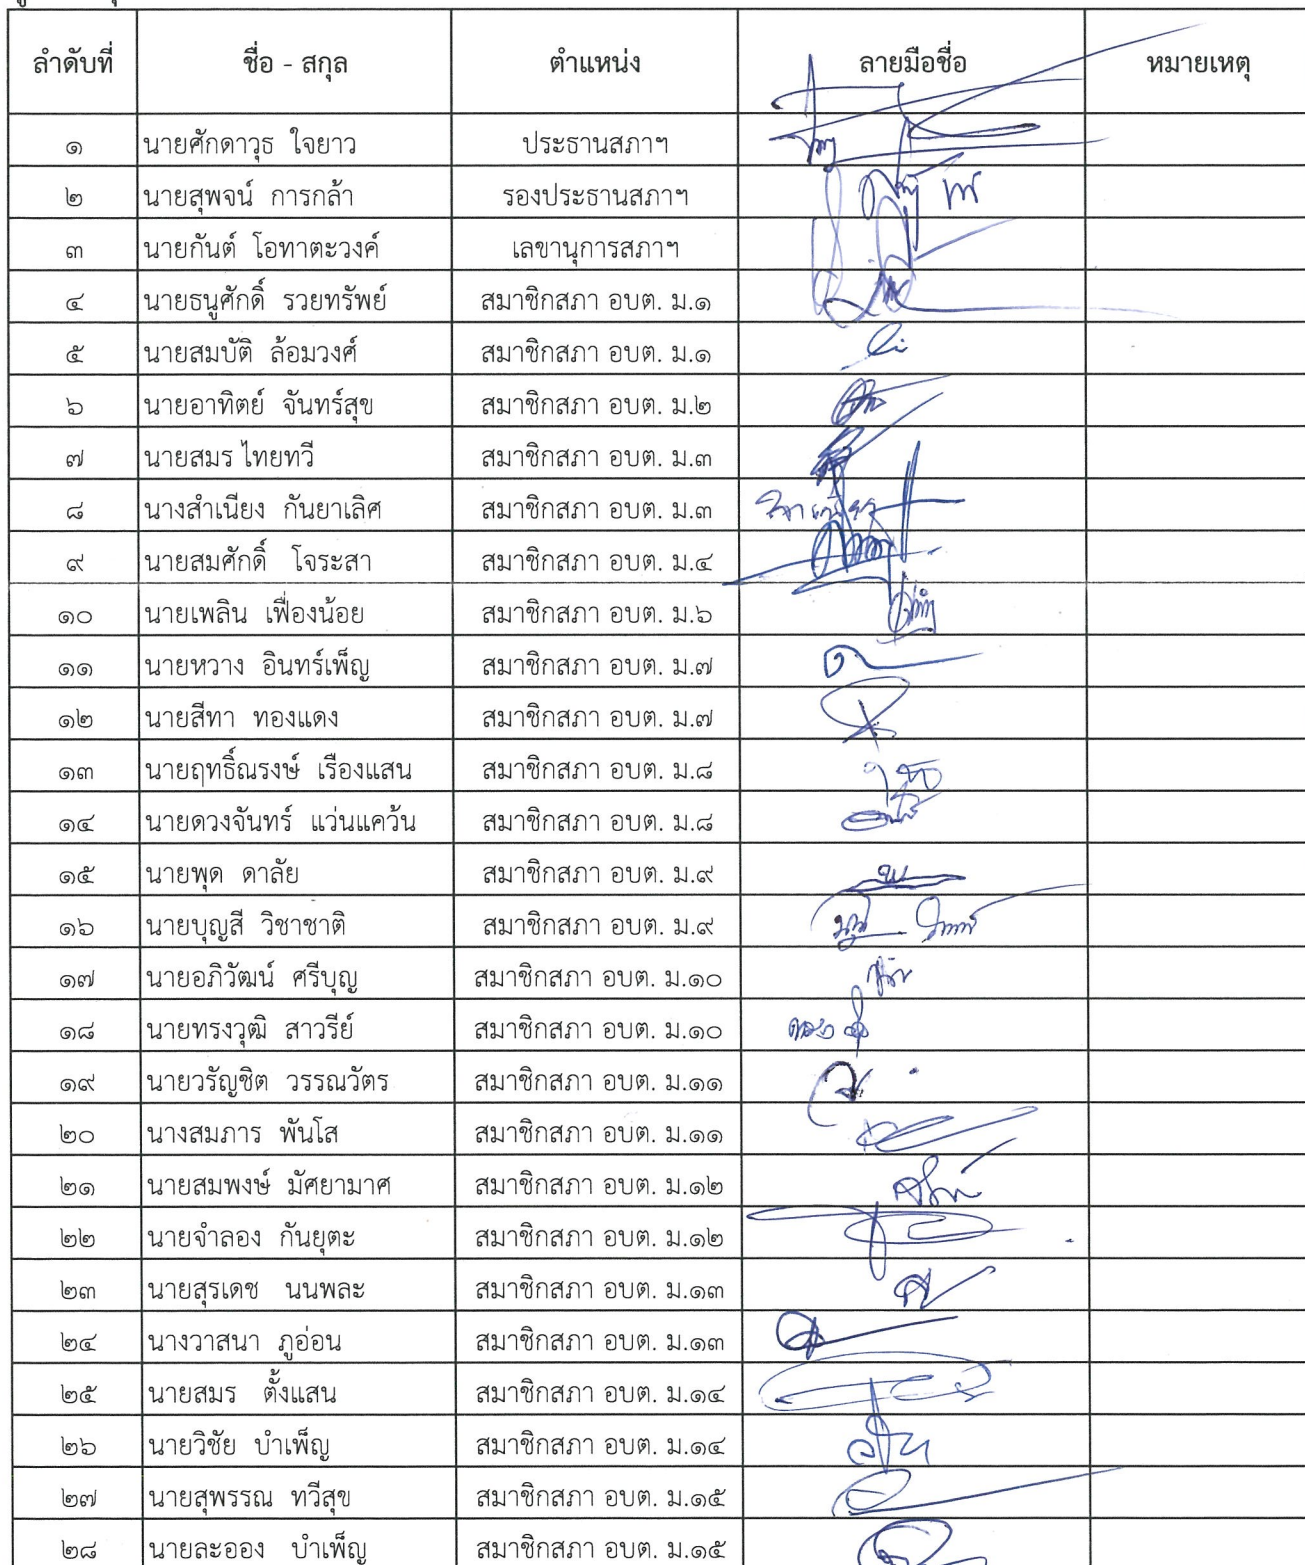 ลำดับที่ ชื่อ - สกุล ตำแหน่ง ลายมือชื่อ หมายเหตุ
๑ นายศักดาวุธ ใจยาว ประธานสภาฯ
๒ นายสุพจน์ การกล้า รองประธานสภาฯ
๓ นายกันต์ โอทาตะวงค์ เลขานุการสภาฯ
๔ นายธนูศักดิ์ รวยทรัพย์ สมาชิกสภา อบต. ม.๑
๕ นายสมบัติ ล้อมวงศ์ สมาชิกสภา อบต. ม.๑
๖ นายอาทิตย์ จันทร์สุข สมาชิกสภา อบต. ม.๒
๗ นายสมร ไทยทวี สมาชิกสภา อบต. ม.๓
๘ นางสำเนียง กันยาเลิศ สมาชิกสภา อบต. ม.๓
๙ นายสมศักดิ์ โจระสา สมาชิกสภา อบต. ม.๔
๑๐ นายเพลิน เฟื่องน้อย สมาชิกสภา อบต. ม.๖
๑๑ นายหวาง อินทร์เพ็ญ สมาชิกสภา อบต. ม.๗
๑๒ นายสีทา ทองแดง สมาชิกสภา อบต. ม.๗
๑๓ นายฤทธิ์ณรงษ์ เรืองแสน สมาชิกสภา อบต. ม.๘
๑๔ นายดวงจันทร์ แว่นแคว้น สมาชิกสภา อบต. ม.๘
๑๕ นายพุด ดาลัย สมาชิกสภา อบต. ม.๙
๑๖ นายบุญสี วิชาชาติ สมาชิกสภา อบต. ม.๙
๑๗ นายอภิวัฒน์ ศรีบุญ สมาชิกสภา อบต. ม.๑๐
๑๘ นายทรงวุฒิ สาวรีย์ สมาชิกสภา อบต. ม.๑๐
๑๙ นายวรัญชิต วรรณวัตร สมาชิกสภา อบต. ม.๑๑
๒๐ นางสมภาร พันโส สมาชิกสภา อบต. ม.๑๑
๒๑ นายสมพงษ์ มัศยามาศ สมาชิกสภา อบต. ม.๑๒
๒๒ นายจำลอง กันยุตะ สมาชิกสภา อบต. ม.๑๒
๒๓ นายสุรเดช นนพละ สมาชิกสภา อบต. ม.๑๓
๒๔ นางวาสนา ภูอ่อน สมาชิกสภา อบต. ม.๑๓
๒๕ นายสมร ตั้งแสน สมาชิกสภา อบต. ม.๑๔
๒๖ นายวิชัย บำเพ็ญ สมาชิกสภา อบต. ม.๑๔
๒๗ นายสุพรรณ ทวีสุข สมาชิกสภา อบต. ม.๑๕
๒๘ นายละออง บำเพ็ญ สมาชิกสภา อบต. ม.๑๕